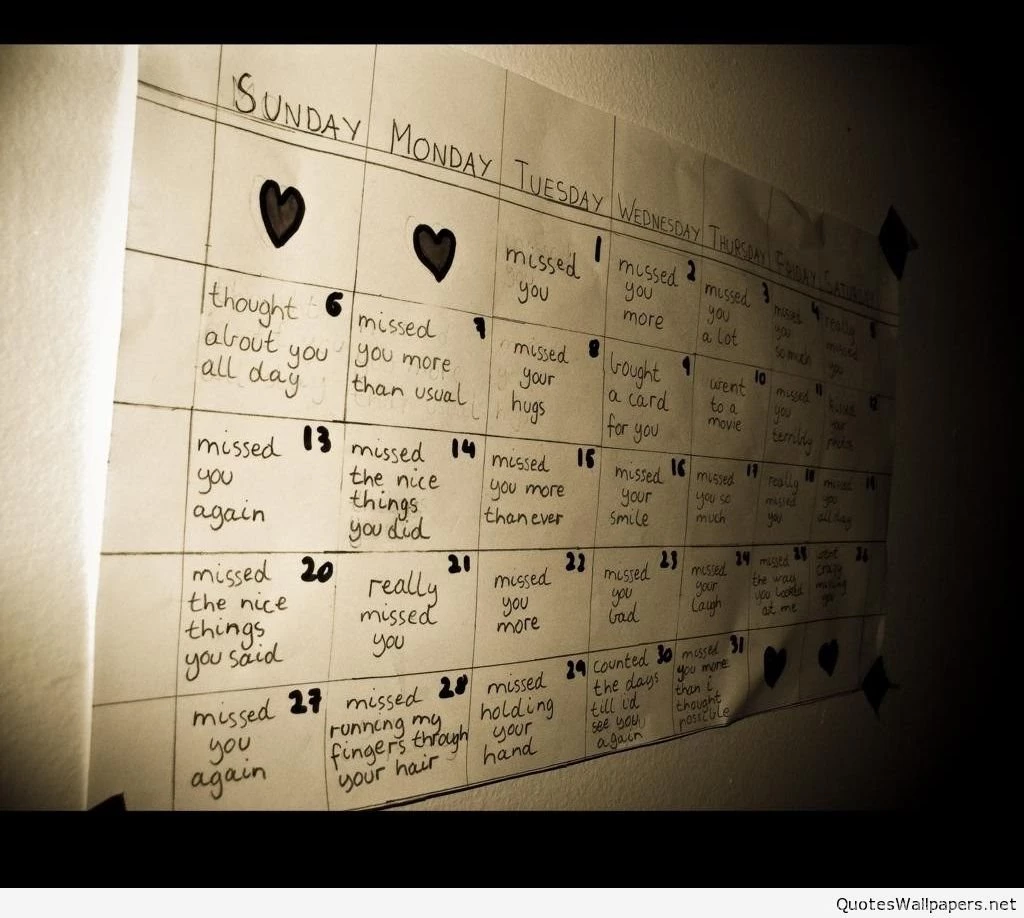 SUNDAY MONDAY TUESDAY WEDNESDAY THURSDAY FRIDAY SATURDAY
1
missed
you
2
missed
you
more
3
missed
you
a lot
4
missed
you
so much
5
really
missed
you
6
thought
about you
all day
7
missed
you more
than usual
8
missed
your
hugs
9
bought
a card
for you
10
went
to a
movie
11
missed
you
terribly
12
your
13
missed
you
again
14
missed
the nice
things
you did
15
missed
you more
than ever
16
missed
your
smile
17
missed
you so
much
18
really
missed
you
19
missed
you
all day
20
missed
the nice
things
you said
21
really
missed
you
22
missed
you
more
23
missed
you
bad
24
missed
your
laugh
25
missed
the way
you looked
at me
26
went
crazy
missing
you
27
missed
you
again
28
missed
running my
fingers through
your hair
29
missed
holding
your
hand
30
counted
the days
till i'd
see you
again
31
missed
you more
than i
thought
possible
QuotesWallpapers.net